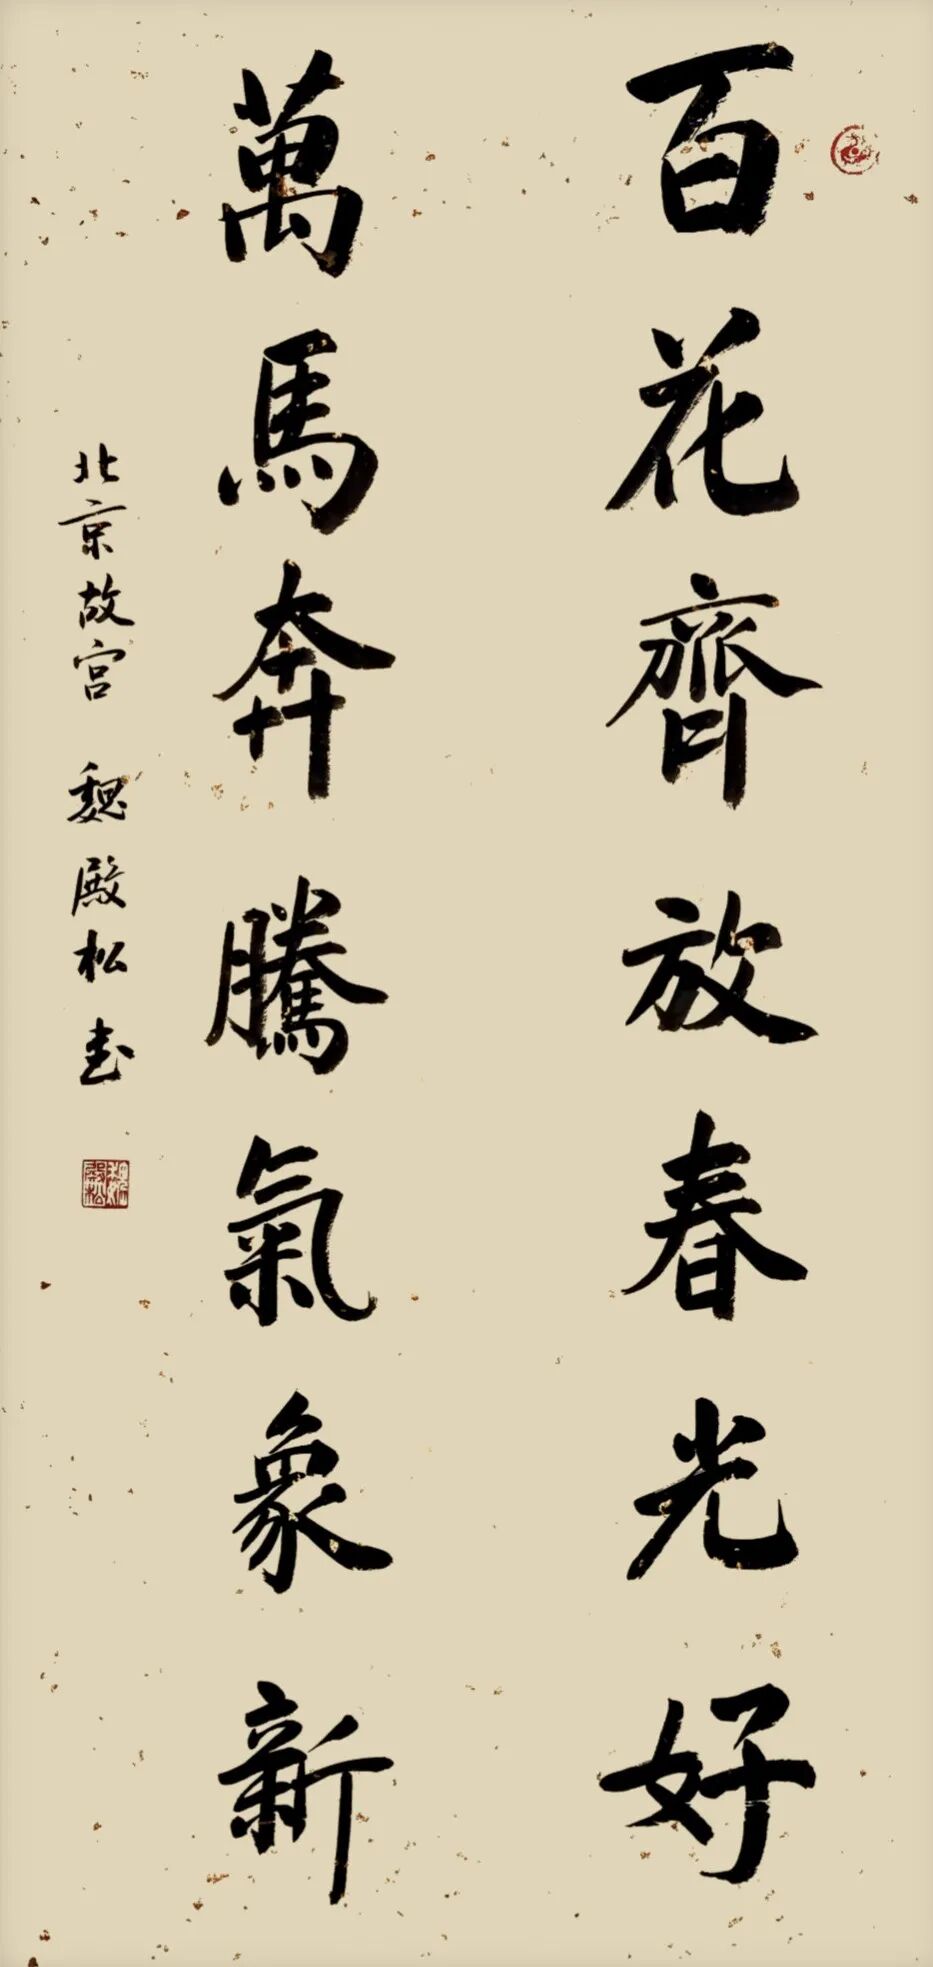 百花齊放春光好
萬馬奔騰氣象新
北京故宫 魏殿松书
魏殿松